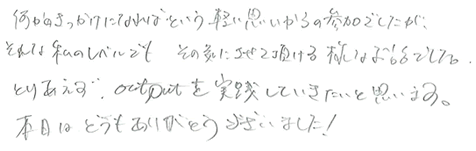 何かのきっかけになればという軽い思いからの参加でしたが、
そんな私のレベルでも その気にさせて頂ける様なお話でした。
とりあえず、outputを実践していきたいと思います。
本日はどうもありがとうございました!